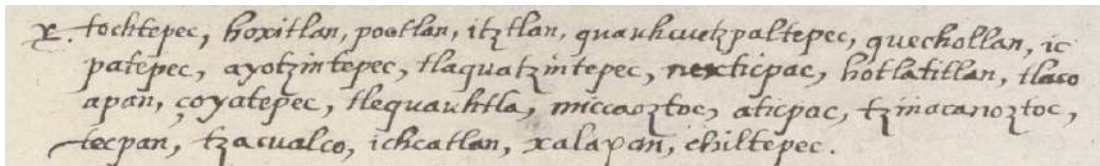 x. tochtepec, hoxitlan, pootlan, itztlan, quauhcuetzpaltepec, quechollan, ic
patepec, ayotzintepec, tlaquatzintepec, nexticpac, hotlatitlan, tlaco
apan, çoyatepec, tlequauhtla, miccaoztoc, aticpac, tzinacanoztoc,
tecpan, tzacualco, ichcatlan, xalapan, chiltepec.